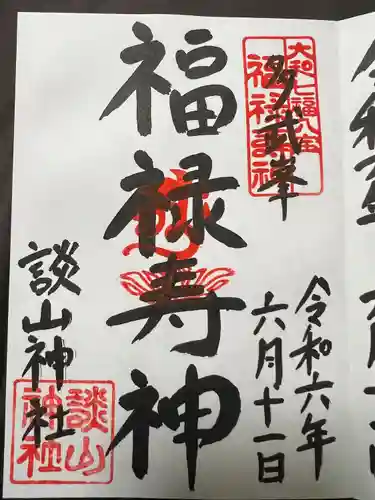 大和七福八宝
多武峯
令和六年
六月十一日
福禄寿神
談山神社
談山
神社